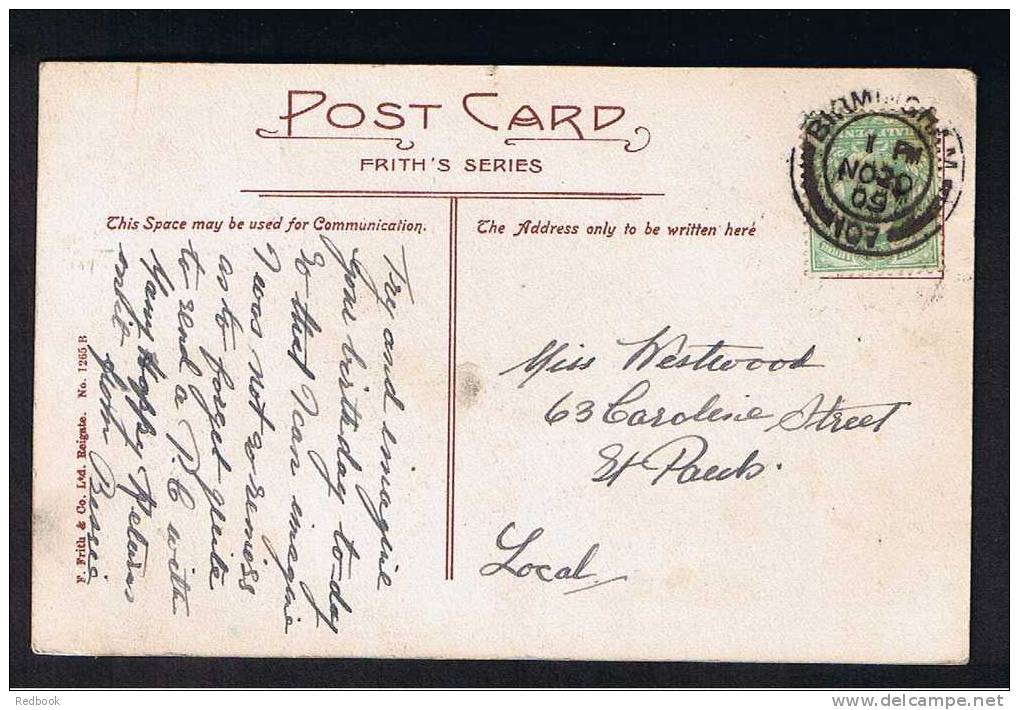 POST CARD
FRITH'S SERIES
This Space may be used for Communication.
The Address only to be written here
BIRMINGHAM
1 PM
NO 30
09
107
HALF PENNY
Try and imagine
your birthday to-day
so that I can imagine
I was not so remiss
as to forget quite
to send a P.C with
Many Happy Returns
on it
from Bessie
F. Frith & Co. Ltd. Reigate. No. 1265 B
Miss Westwood
63 Caroline Street
St Pauls.
Local
Redbook
www.delcampe.net